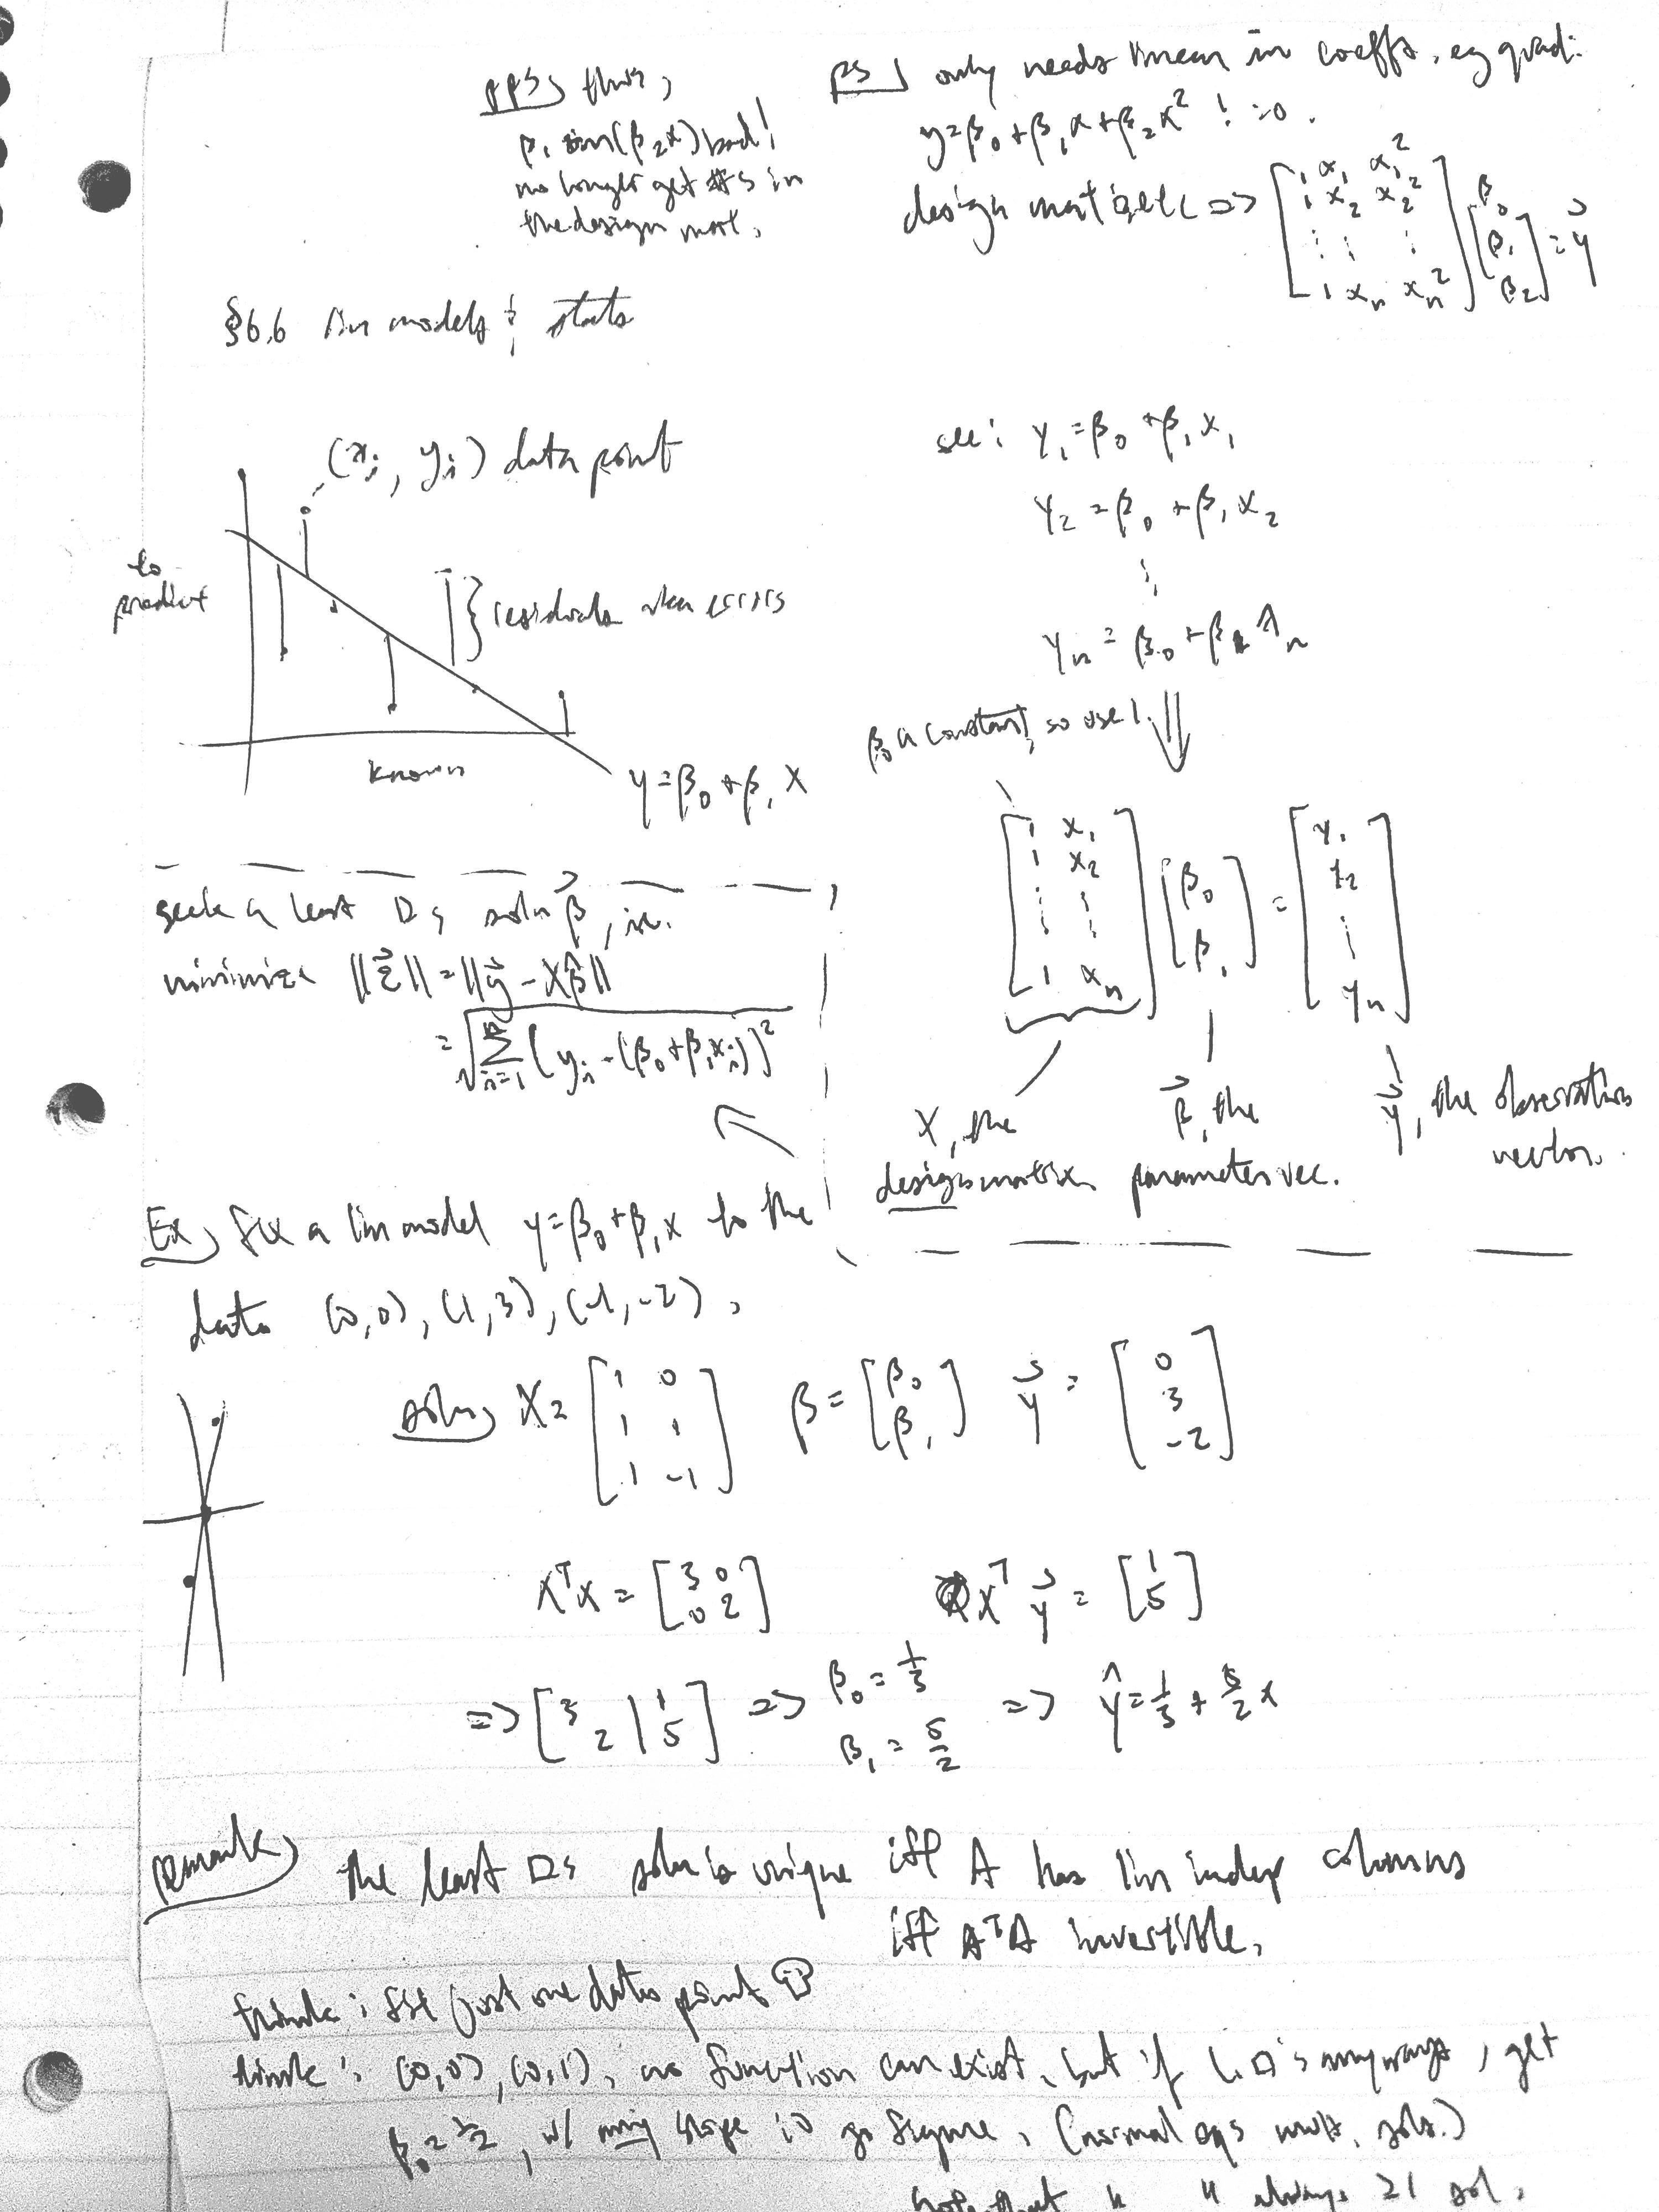 pps) thus,
β₁ sin(β₂x) bad!
no longer get #s in
the design mat.
ps) only needs linear in coeffs, eg quad:
y=β₀+β₁x+β₂x² ! :o .
design mat => [1 x₁ x₁²
1 x₂ x₂²
⋮ ⋮ ⋮
1 xₙ xₙ²] [β₀
β₁
β₂] = y⃗
§6.6 lin models & stats
(xᵢ, yᵢ) data point
to
predict
} residuals aka errors
known
y=β₀+β₁x
see: y₁=β₀+β₁x₁
y₂=β₀+β₁x₂
⋮
yₙ=β₀+β₁xₙ
β₀ a constant, so use 1. ⇓
[1 x₁
1 x₂
⋮ ⋮
1 xₙ] [β₀
β₁] = [y₁
y₂
⋮
yₙ]
X, the
design matrix
β⃗, the
parameter vec.
y⃗, the observation
vector.
seek a least □s soln β⃗, i.e.
minimize ||ε⃗|| = ||y⃗ - Xβ⃗||
= √Σⁿᵢ₌₁ (yᵢ-(β₀+β₁xᵢ))²
Ex) fit a lin model y=β₀+β₁x to the
data (0,0), (1,3), (-1,-2).
soln) X= [1 0
1 1
1 -1] β= [β₀
β₁] y⃗= [0
3
-2]
XᵀX = [3 0
0 2] Xᵀy⃗ = [1
5]
=> [3 | 1
2 | 5] => β₀=1/3
β₁=5/2 => ŷ=1/3+5/2x
remark) the least □s soln is unique iff A has lin indep columns
iff AᵀA invertible.
think: fit just one data point
think: (0,0), (0,1), no function can exist, but if l.□'s anyways, get
β₀=1/2, w/ any slope :o go figure. (normal eqs mult. sols.)
note that " " always ≥1 sol.